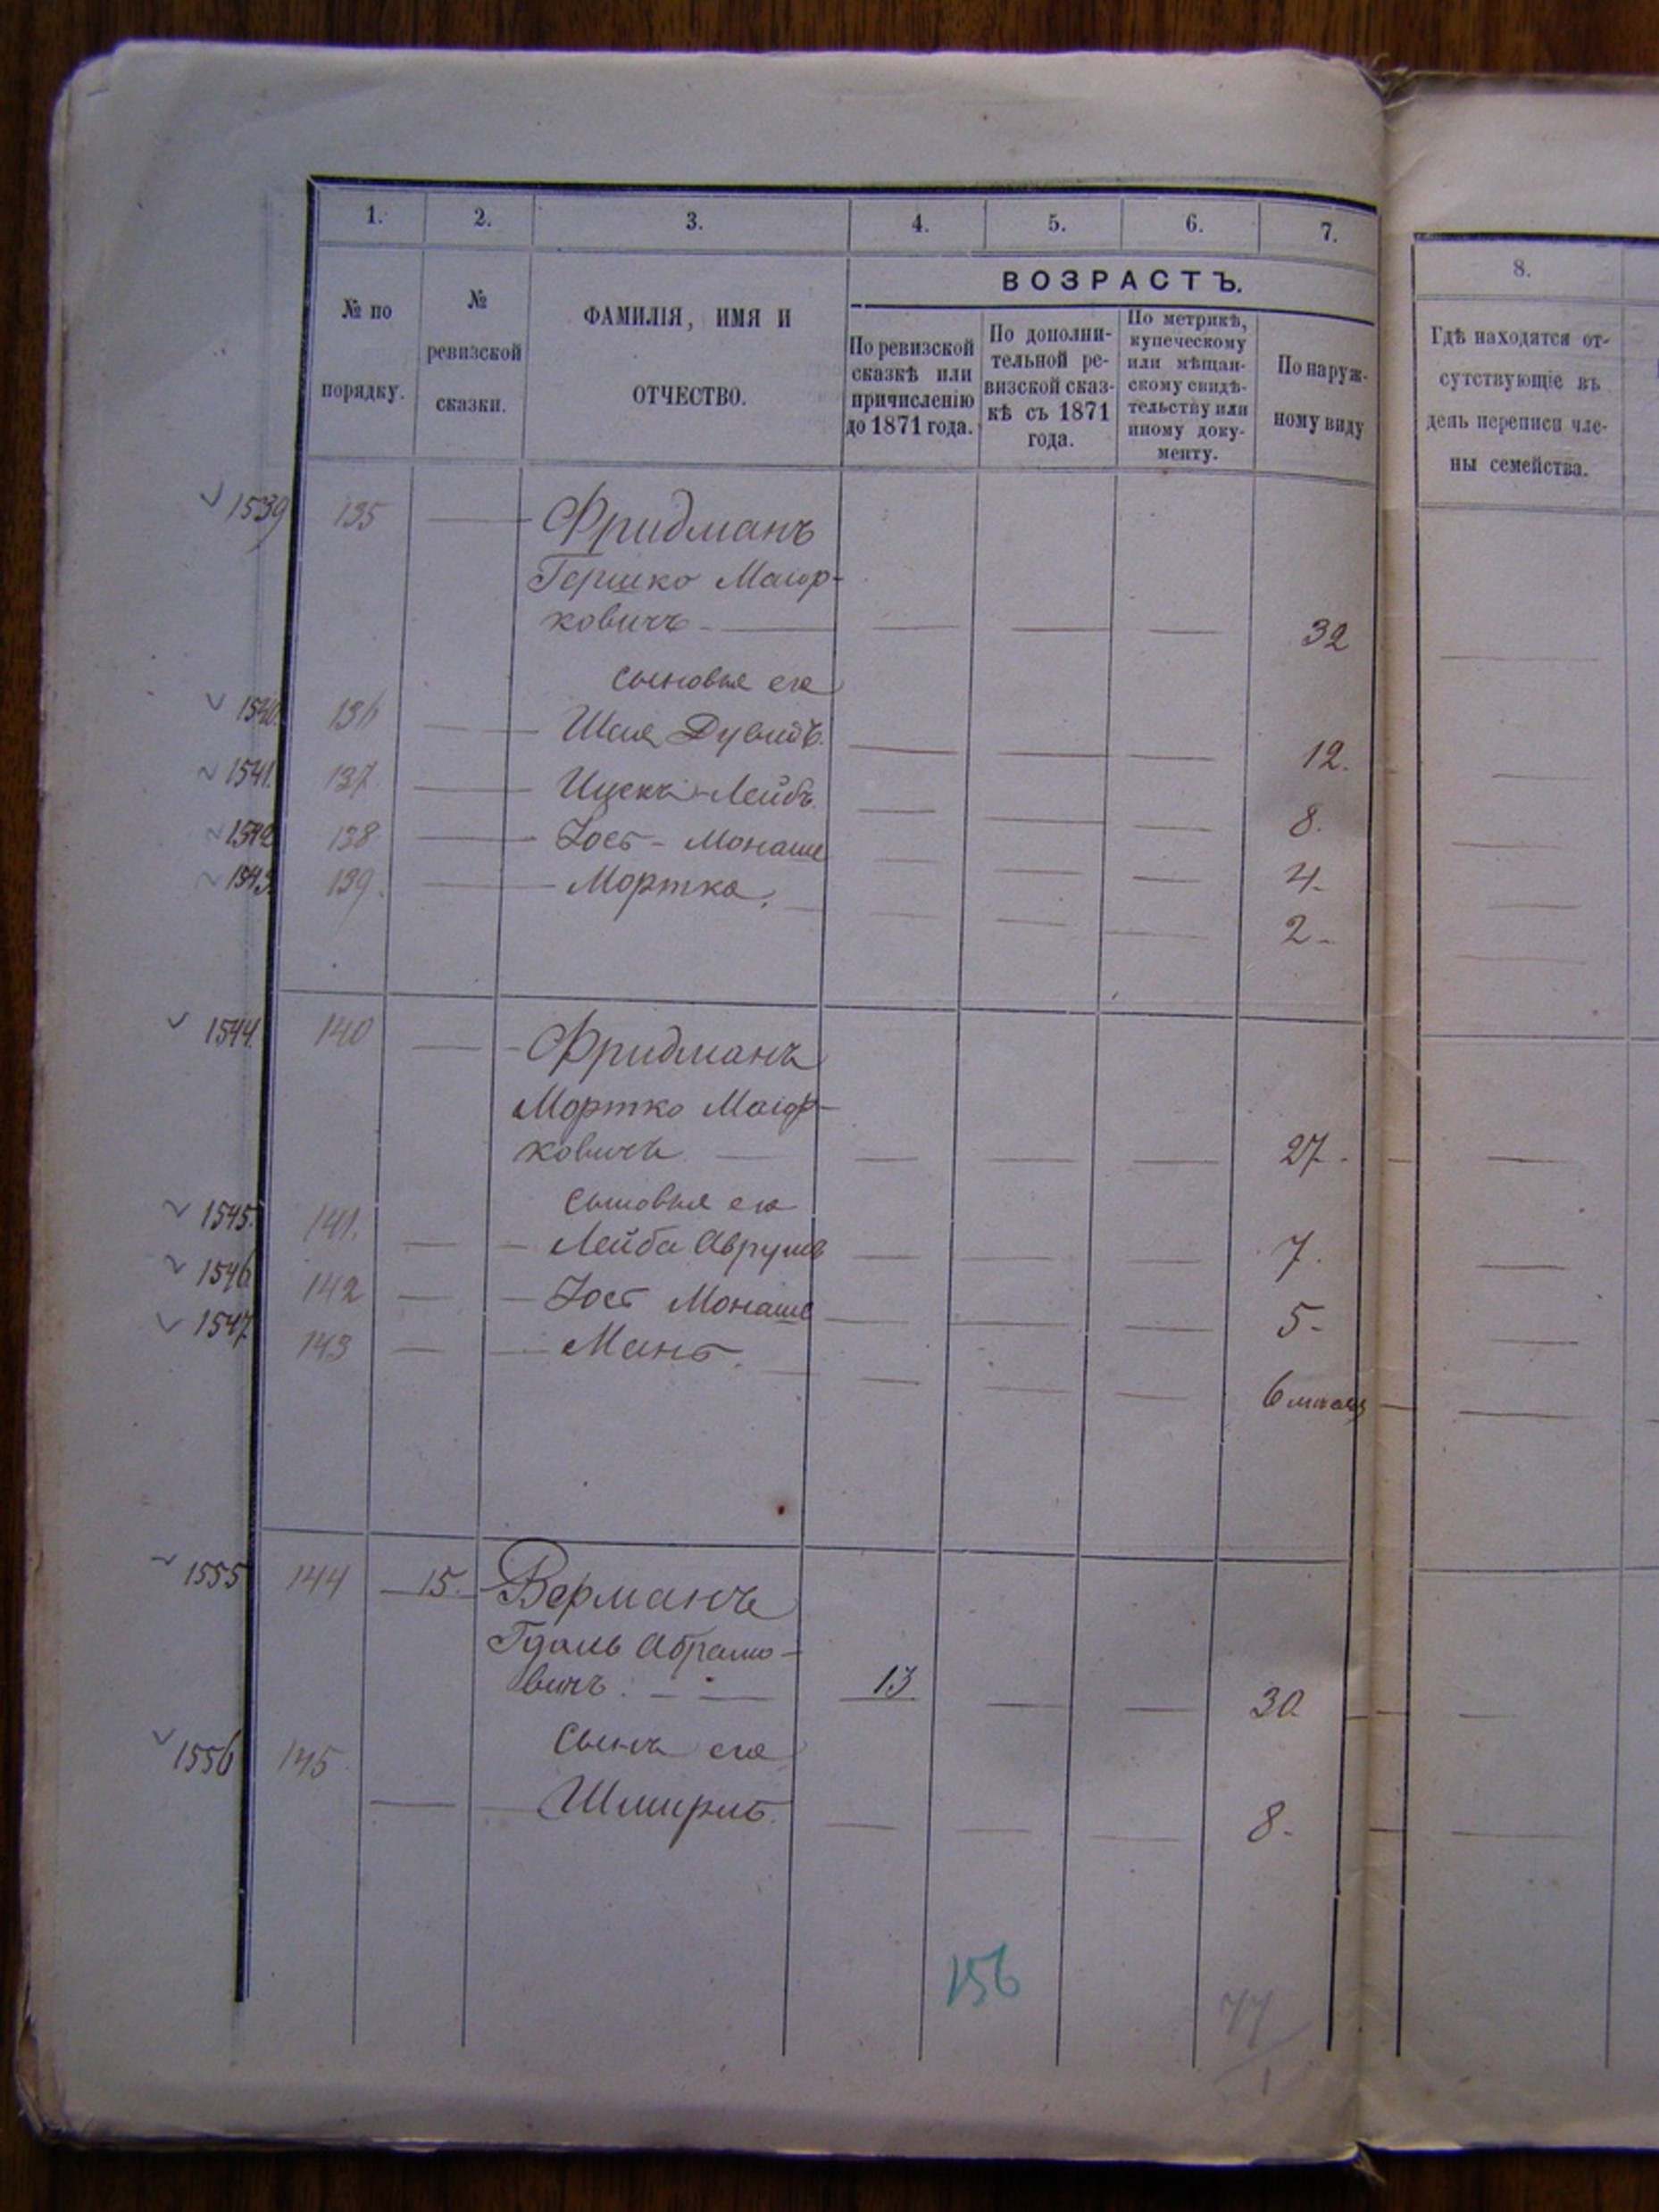 1. 2. 3. 4. 5. 6. 7.
8.
№ по порядку.
№ ревизской сказки.
ФАМИЛІЯ, ИМЯ И
ОТЧЕСТВО.
ВОЗРАСТЪ.
По ревизской
сказкѣ или
причисленію
до 1871 года.
По дополни-
тельной ре-
визской сказ-
кѣ съ 1871
года.
По метрикѣ,
купеческому
или мѣщан-
скому свидѣ-
тельству или
иному доку-
менту.
По наруж-
ному виду
Гдѣ находятся от-
сутствующіе въ
день переписи чле-
ны семейства.
1539 135 Фридманъ
Гершко Маіор-
ковичъ 32
сыновья его
1540 136 Шая Дувидъ. 12.
1541. 137. Ицекъ-Лейбъ. 8.
1542 138 Іосъ-Монаше 4
1543 139. Мортко. 2
1544. 140 Фридманъ
Мортко Маіор-
ковичъ 27
сыновья его
1545. 141. Лейба Аврумъ 7.
1546 142 Іосъ Монаше 5
1547. 143 6
1555 144 15. Верманъ
Абрамо-
вичъ. 13 30
Сынъ его
1556 145 8
156
77
1